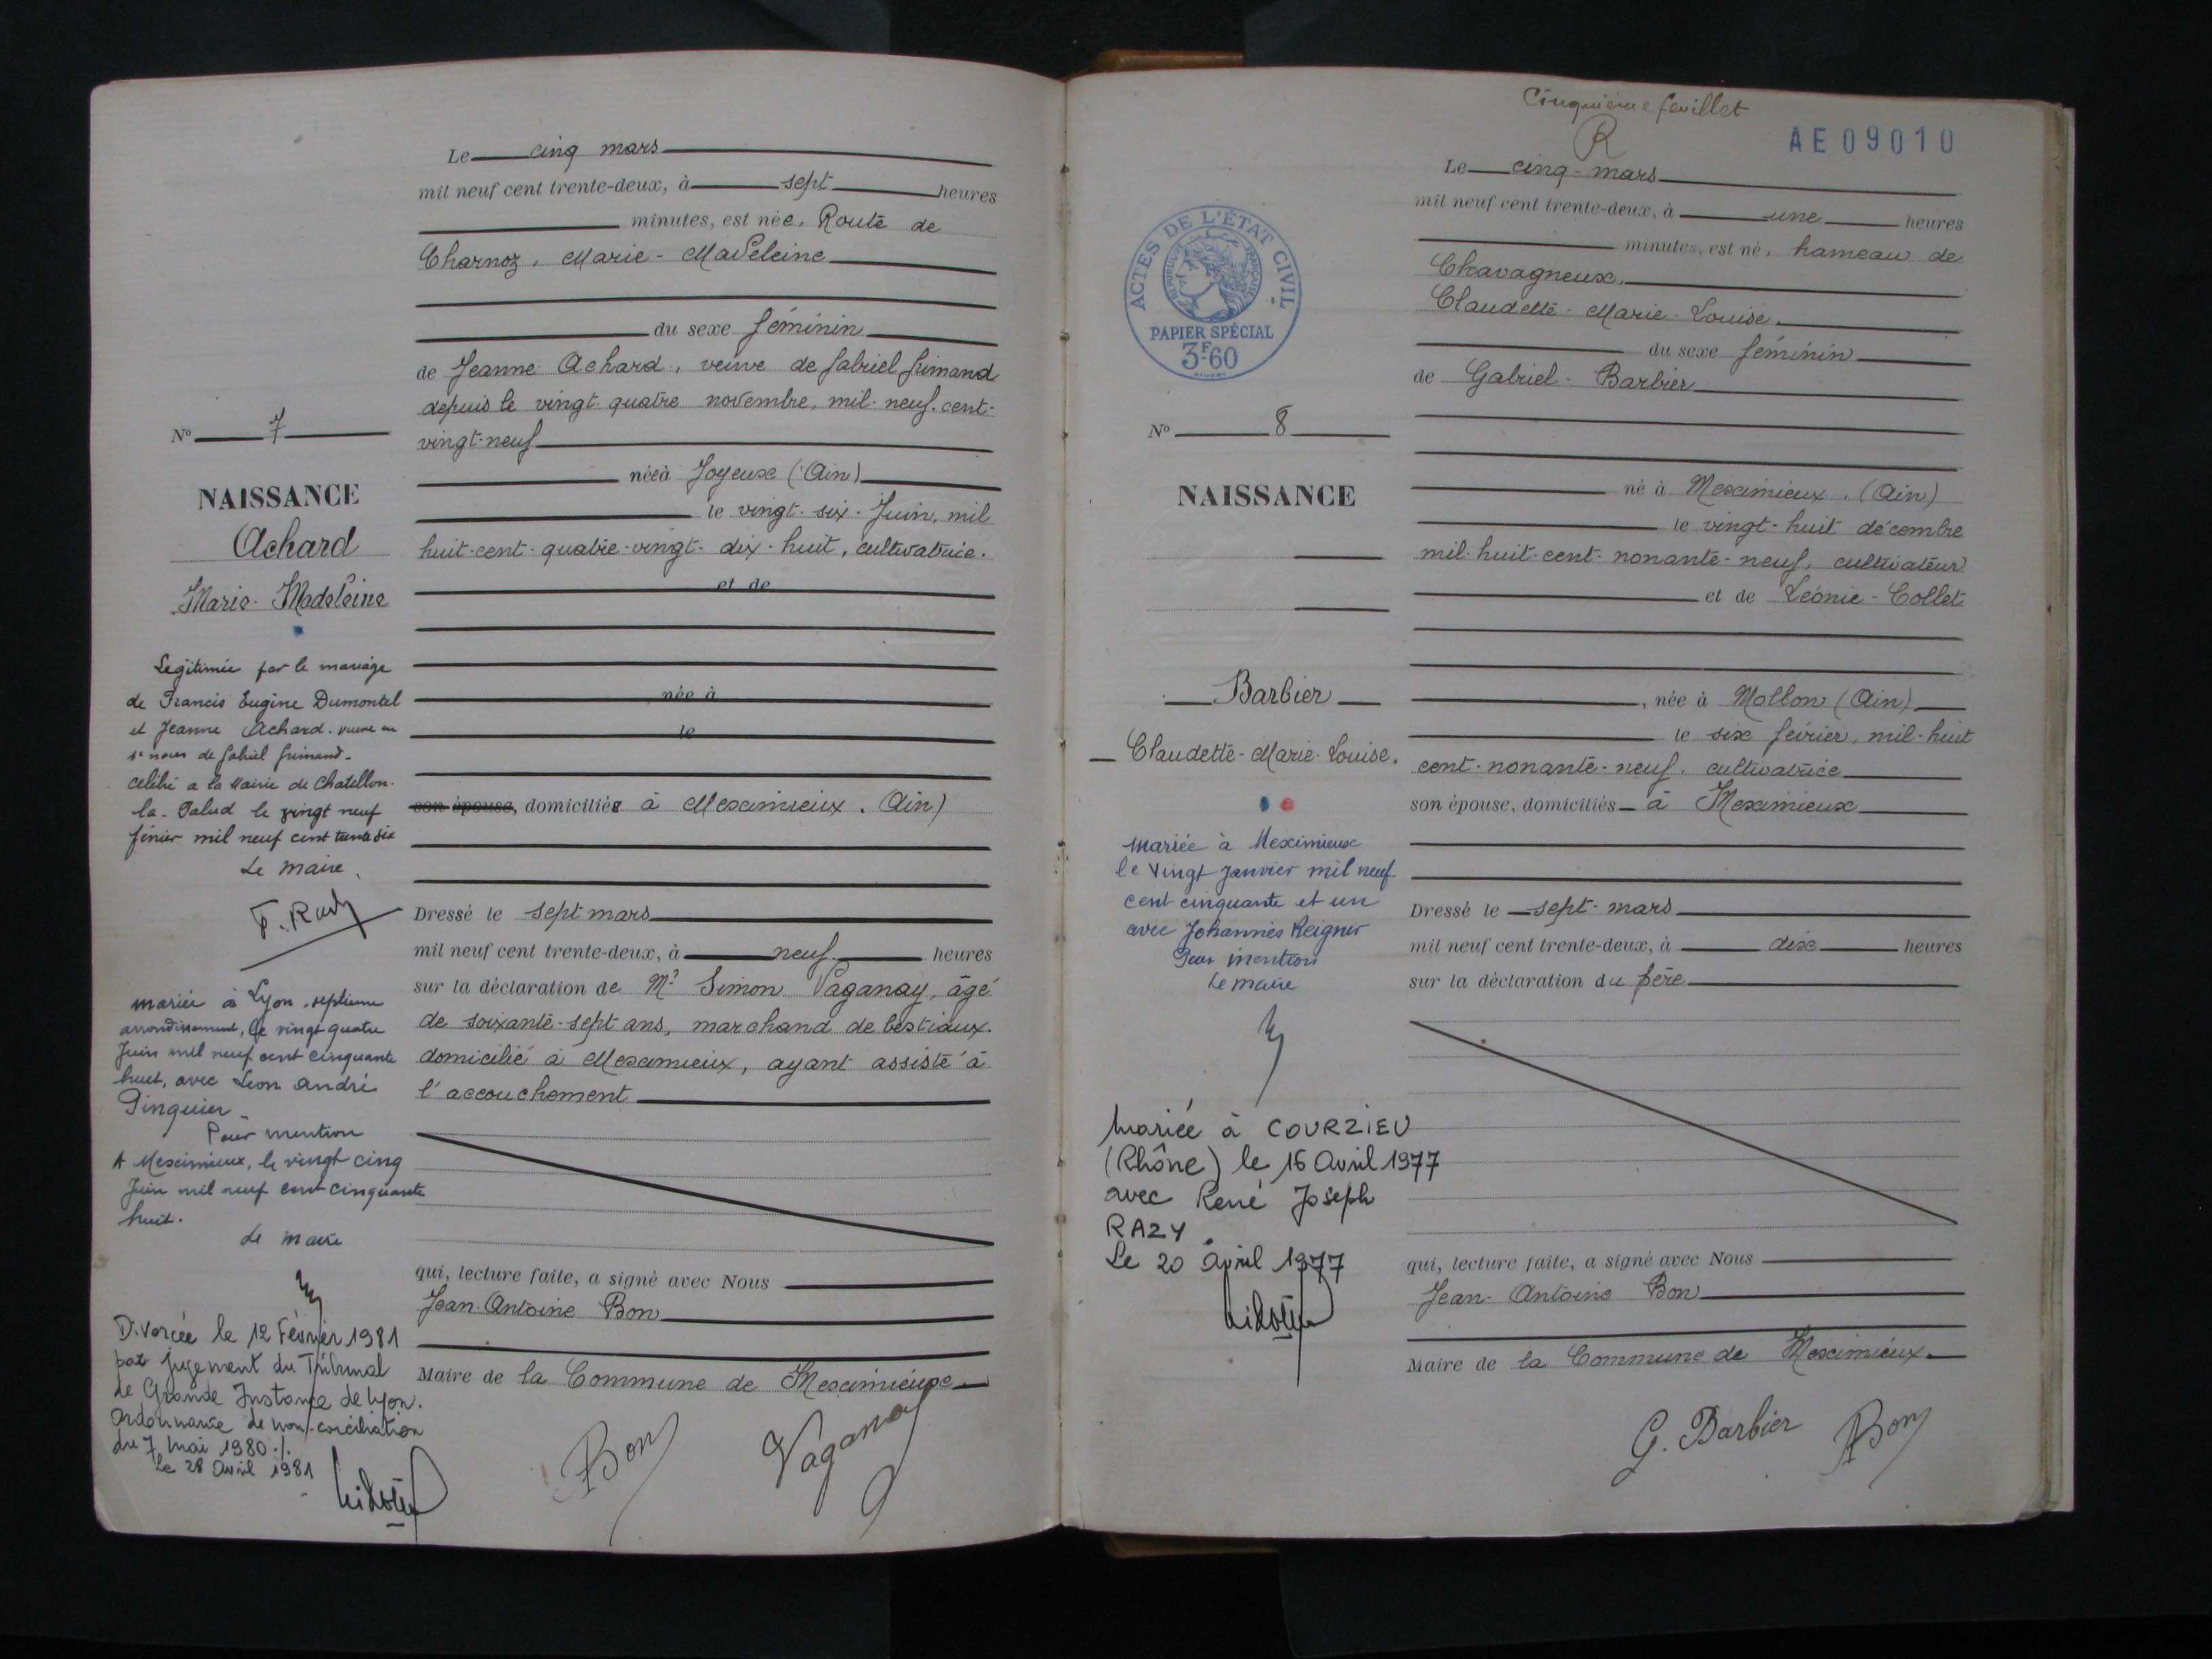 Le cinq mars
mil neuf cent trente-deux, à sept heures
minutes, est née, Route de
Charnoz, Marie-Madeleine
du sexe féminin
de Jeanne Achard, veuve de Gabriel Grimand
depuis le vingt-quatre novembre, mil-neuf-cent-
vingt-neuf
née à Joyeux (Ain)
le vingt-six-Juin, mil
huit-cent-quatre-vingt-dix-huit, cultivatrice.
et de
née à
le
son épouse, domiciliée à Meximieux. (Ain)
Dressé le sept mars
mil neuf cent trente-deux, à neuf heures
sur la déclaration de Mr Simon Vaganay, âgé
de soixante-sept ans, marchand de bestiaux.
domicilié à Meximieux, ayant assisté à
l'accouchement
qui, lecture faite, a signé avec Nous
Jean-Antoine Bon
Maire de la Commune de Meximieux
Bon Vaganay
No 7
NAISSANCE
Achard
Marie-Madeleine
Légitimée par le mariage
de Francis Eugène Dumontel
et Jeanne Achard. veuve en
1e noces de Gabriel Grimand-
célébré a la Mairie de Chatillon-
la-Palud le vingt neuf
février mil neuf cent trente six
Le maire,
mariée à Lyon, septieme
arrondissement, le vingt quatre
Juin mil neuf cent cinquante
huit, avec Léon André
Pinquier-
Pour mention
A Meximieux, le vingt cinq
Juin mil neuf cent cinquante
huit.
Le maire
Divorcée le 12 Février 1981
par jugement du Tribunal
de Grande Instance de Lyon.
Ordonnance de non-conciliation
du 7 mai 1980./.
Le 28 Avril 1981
Cinquième feuillet
R
AE09010
Le cinq-mars
mil neuf cent trente-deux, à une heures
minutes, est né, hameau de
Chavagneux,
Claudette-Marie-Louise.
du sexe féminin
de Gabriel-Barbier
né à Meximieux. (Ain)
le vingt-huit décembre
mil-huit-cent-nonante-neuf, cultivateur
et de Léonie-Collet
, née à Mollon (Ain)
le six février, mil-huit
cent-nonante-neuf, cultivatrice
son épouse, domiciliés à Meximieux
Dressé le sept-mars
mil neuf cent trente-deux, à dix heures
sur la déclaration du père
qui, lecture faite, a signé avec Nous
Jean-Antoine Bon
Maire de la Commune de Meximieux
G. Barbier Bon
ACTES DE L'ÉTAT CIVIL
REPUBLIQUE FRANÇAISE
PAPIER SPÉCIAL
3F60
No 8
NAISSANCE
Barbier
Claudette-Marie-Louise.
Mariée à Meximieux
le Vingt Janvier mil neuf
cent cinquante et un
avec Johannès Reignier
Pour mention
Le maire
Mariée à COURZIEU
(Rhône) le 16 Avril 1977
avec René Joseph
RAZY.
Le 20 April 1977